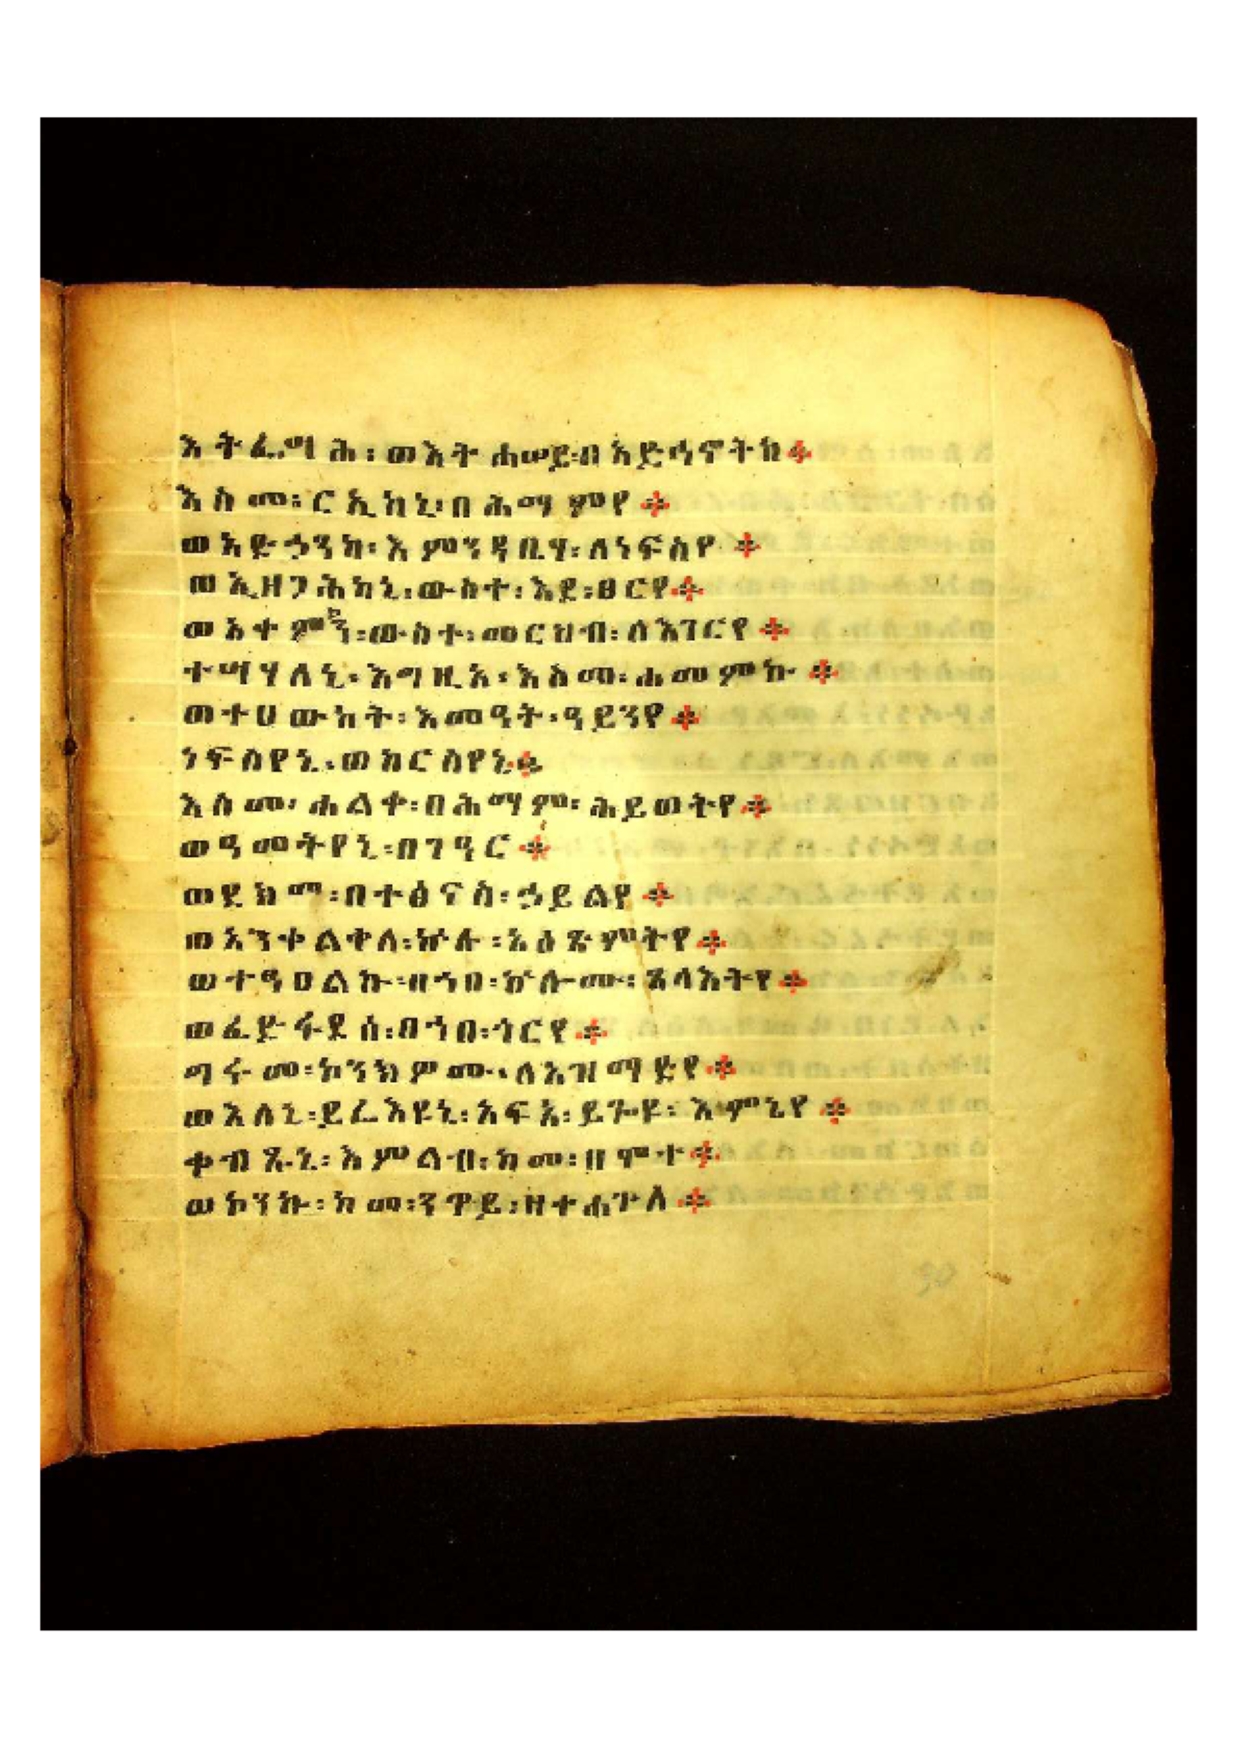 እትፌሣሕ፡ወእትሐሠይ፡በአድኅኖትከ፨
እስመ፡ርኢከኒ፡በሕማምየ፨
ወአድኃንካ፡እምንዳቤሃ፡ለነፍስየ፨
ወኢዘጋሕከኒ፡ውስተ፡እደ፡ፀርየ፨
ወአቀምኮን፡ውስተ፡መርህብ፡ለእገርየ፨
ተሣሃለኒ፡እግዚአ፡እስመ፡ሐመምኩ፨
ወተሀውከት፡እመዓት፡ዓይንየ፨
ነፍስየኒ፡ወከርሥየኒ፨
እስመ፡ሐልቀ፡በሕማም፡ሕይወትየ፨
ወዓመትየኒ፡በገዓር፨
ወደክመ፡በተፅናስ፡ኃይልየ፨
ወአንቀልቀለ፡ኵሉ፡አዕፅምትየ፨
ወተዓፀልኩ፡በኀበ፡ኵሎሙ፡ጸላእትየ፨
ወፈድፋደሰ፡በኀበ፡ጎርየ፨
ግሩመ፡ኮንክዎሙ፡ለአዝማድየ፨
ወእለኒ፡ይሬእዩኒ፡አፍአ፡ይጐዩ፡እምኔየ፨
ቀብጹኒ፡እምልብ፡ከመ፡ዘሞተ፨
ወኮንኩ፡ከመ፡ንዋይ፡ዘተሐጕለ፨